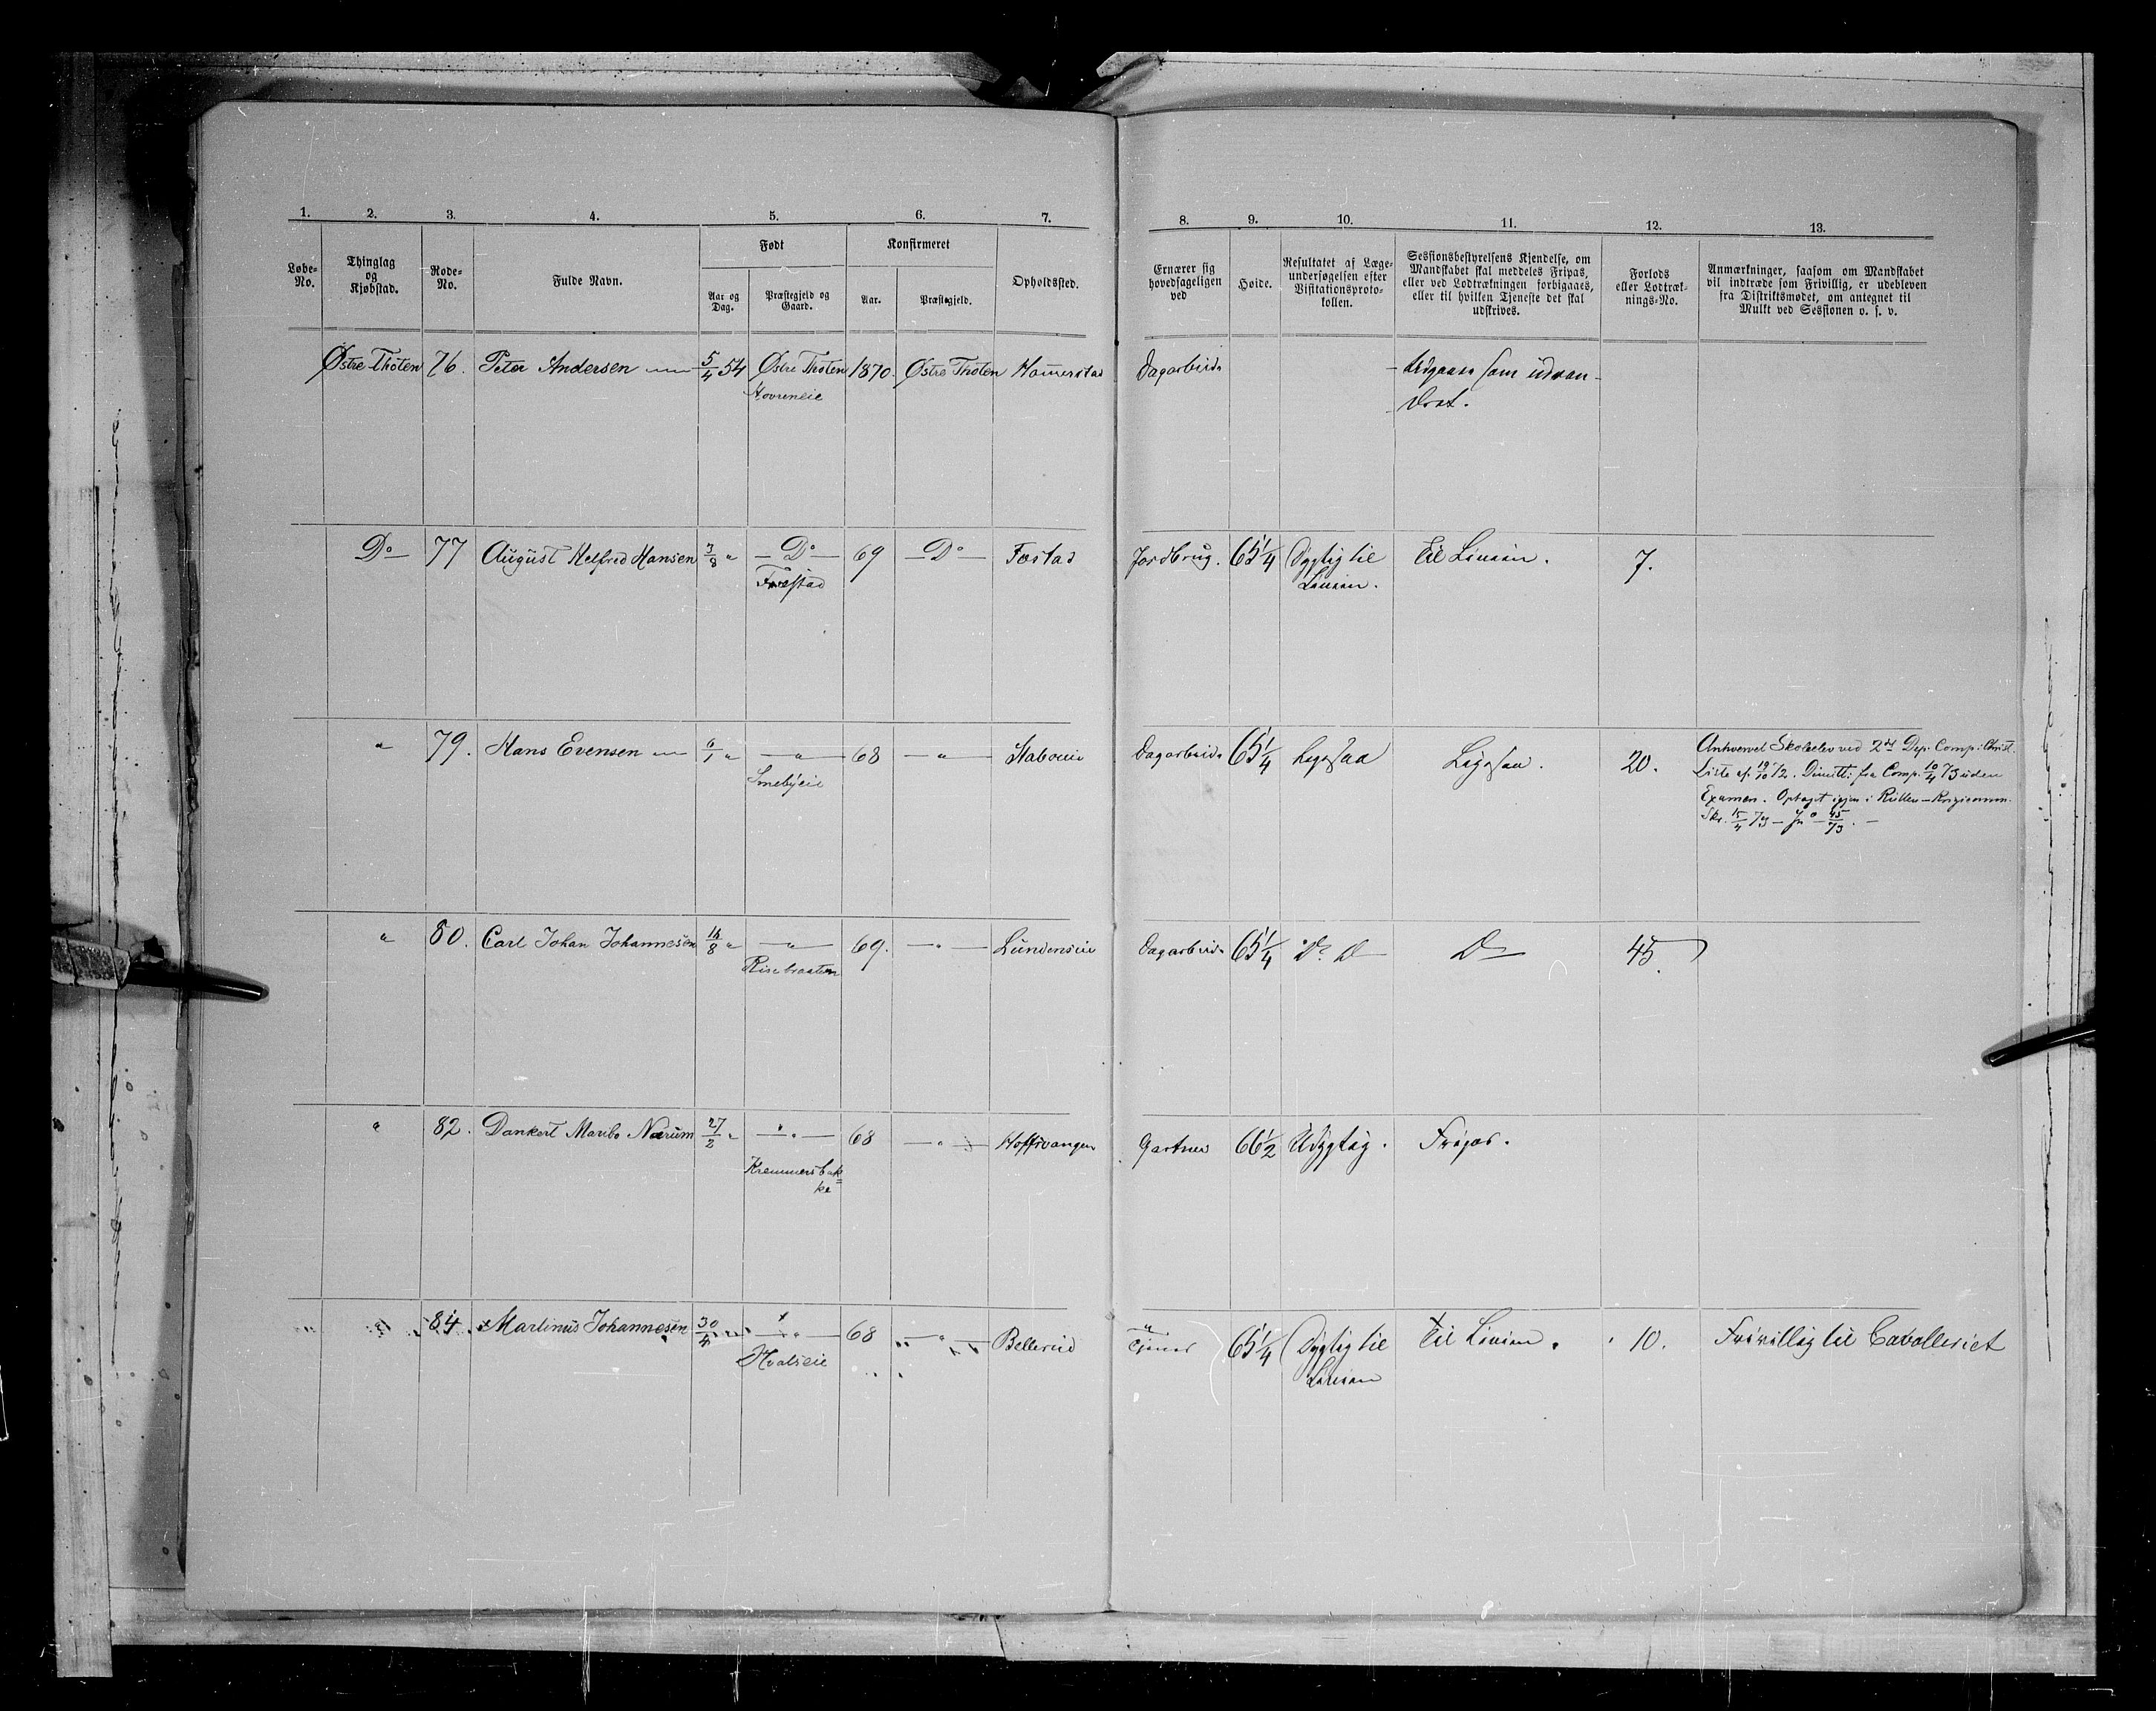 1. 2. 3. 4. 5. 6. 7. 8. 9. 10. 11. 12. 13.
Løbe-No.
Thinglag og Kjøbstad.
Rode-No.
Fulde Navn.
Født
Aar og Dag.
Præstegjeld og Gaard.
Konfirmeret
Aar.
Præstegjeld.
Opholdssted.
Ernærer sig hovedsageligen ved
Høide.
Resultatet af Læge-undersøgelsen efter Visitationsproto-kollen.
Sessionsbestyrelsens Kjendelse, om Mandskabet skal meddeles Fripas, eller ved Lodtrækningen forbigaaes, eller til hvilken Tjeneste det skal udskrives.
Forlods eller Lodtræk-nings-No.
Anmærkninger, saasom om Mandskabet vil indtræde som Frivillig, er udebleven fra Distriktsmødet, om antegnet til Mulkt ved Sessionen o. s. v.
Østre Thoten 76. Peter Andersen 5/4 54 Østre Thoten 1870. Østre Thoten Hammerstad Dagarbeide Udgaaer som udvan-
Hovreneie
dret.
Do 77 August Helfred Hansen 3/8 " Do 69 Do Fostad Jordbrug. 65 1/4 Dygtig til Linien. Til Linien. 7.
" 79. Hans Evensen 6/1 " " 68 " Staboeie Dagarbeide 65 1/4 Ligesaa Ligesaa. 20. Anhvervet Skoleelev ved 2det Dep. Comp. i Christ.
Smebyeie
Liste af 19/10 72. Dimitt: fra Comp. 10/4 73 uden
Examen. Optaget igjen i Rullen
Skr. 15/4 73 - Jno 45/73. -
" 80. Carl Johan Johannesen 16/8 " " 69. " Lundenseie Dagarbeide 65 1/4 Do Do Do 45.
Risebraaten
" 82. Dankert Maribo Nærum 27/2 " " 68 " Hoffsvangen Gartner 66 1/2 Udygtig. Fripas.
Kremmersbak=
ke
" " 84. Martinus Johannesen 30/4 " " 68 " Bellerud Tjener 65 1/4 Dygtig til Linien Til Linien. 10. Frivillig til Cavalleriet
Hvalseie